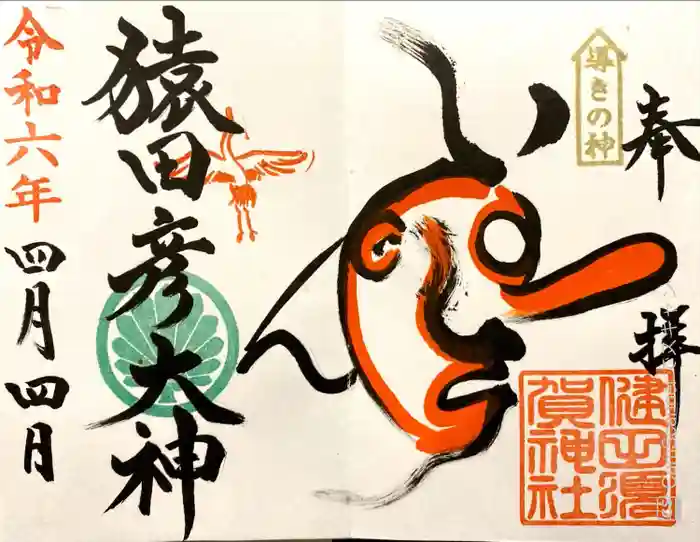 奉拝
導きの神
健田須
賀神社
猿田彦大神
令和六年
四月四日